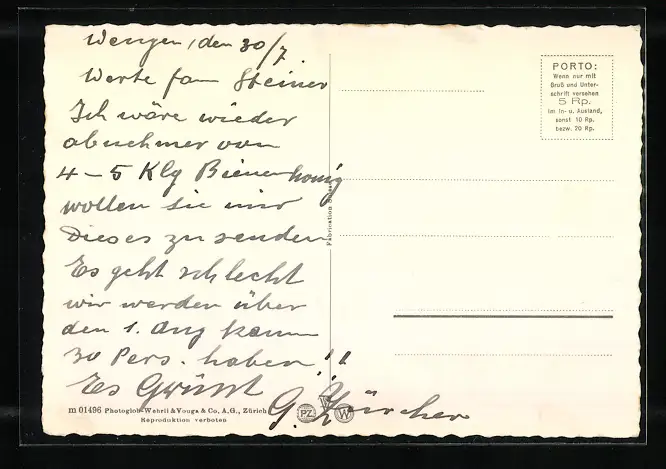 Wengen, den 30/7
Werte fam Steiner
Ich wäre wieder
abnehmer von
4-5 Klg Bienenhonig
wollen sie mir
Dieses zu senden
Es geht schlecht
wir werden über
den 1. Aug kaum
30 Pers. haben!!
Es Grüsst
G. Zürcher
m 01496 Photoglob-Wehrli & Vouga & Co., A.G., Zürich
Reproduktion verboten
PZ
W
Fabrication Suisse
PORTO:
Wenn nur mit
Gruß und Unter-
schrift versehen
5 Rp.
im In- u. Ausland,
sonst 10 Rp.
bezw. 20 Rp.